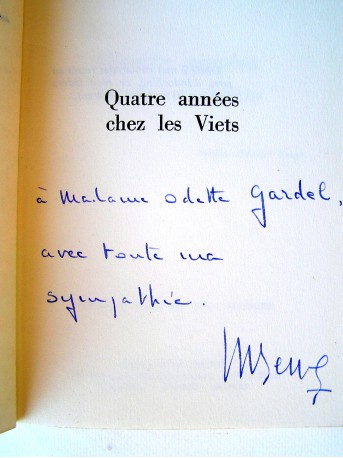 Quatre années
chez les Viets
à Madame Odette Gardel,
avec toute ma
sympathie.